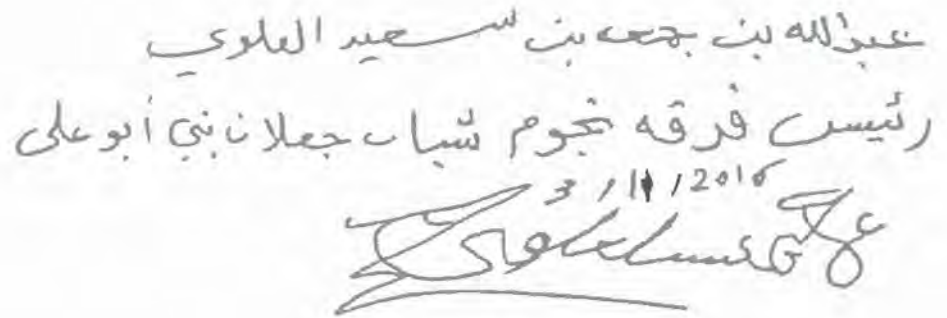 عبدالله بن جمعه بن سعيد العلوي
رئيس فرقه نجوم شباب جعلان بني أبو علي
3/11/2016